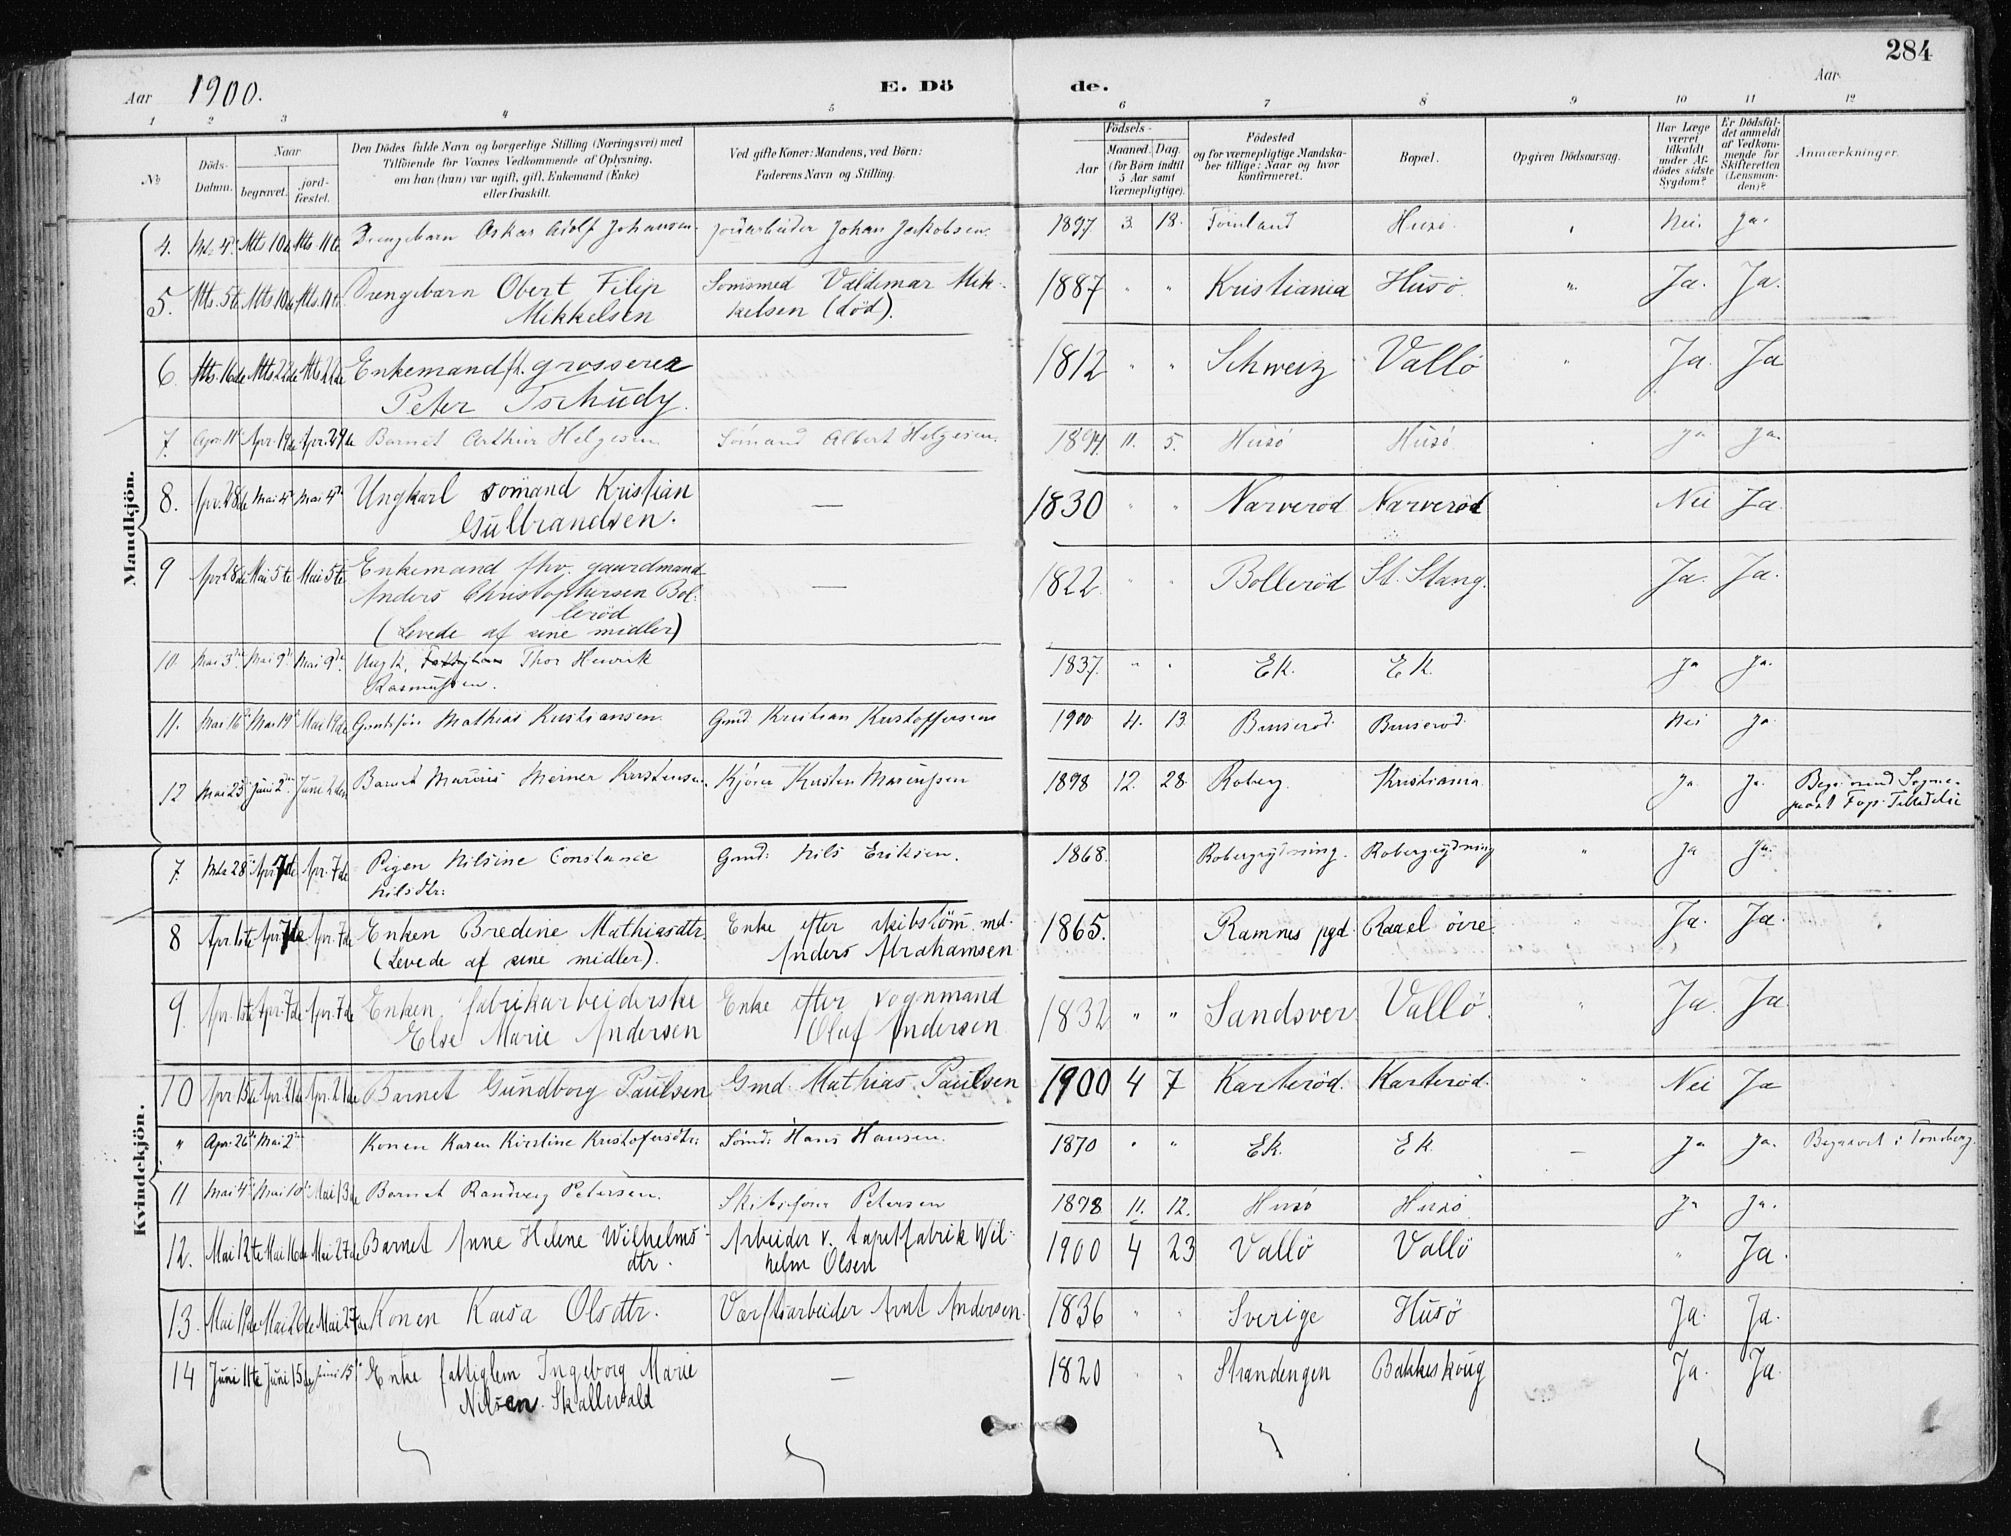 284
Aar 1900. E. Dö de. Aar
1 2 3 4 5 6 7 8 9 10 11 12
№
Döds-Datum.
Naar
begravet.
jord-fæstet.
Den Dödes fulde Navn og borgerlige Stilling (Næringsvei) med
Tilföiende for Voxnes Vedkommende af Oplysning,
om han (hun) var ugift, gift, Enkemand (Enke)
eller fraskilt.
Ved gifte Koner: Mandens, ved Börn:
Faderens Navn og Stilling.
Födsels-
Aar
Maaned. Dag.
(for Börn indtil
5 Aar samt
Værnepligtige).
Födested
og for værnepligtige Mandska-
ber tillige: Naar og hvor
konfirmeret.
Bopæl.
Opgiven Dödsaarsag.
Har Læge
været
tilkaldt
under Af-
dödes sidste
Sygdom?
Er Dödsfal-
det anmeldt
af Vedkom-
mende for
Skifteretten
(Lensman-
den)?
Anmærkninger.
Mandkjön.
4. Mts 4de Mts 10de Mts 11te Drengebarn Oskar Adolf Johansen. Johan Jakobsen. 1897 3. 18. Husö. " Nei. Ja.
5. Mts. 5te Mts 10de Mts. 11te Drengebarn Obert Filip Sömsmed Valdemar Mik- 1887 " " Kristiania Husö. " Ja. Ja.
Mikkelsen kelsen (död).
6. Mts. 16de Mts 22de Mts 22de Enkemand fh. grosserer 1812 " " Schweiz Vallö " Ja. Ja
Peter Tschudy.
7. Apr. 11te Apr. 19de Apr. 29de Barnet Arthur Helgesen Sömand Albert Helgesen. 1894 11. 5. Husö Husö. Ja Ja.
8. Apr. 28de Mai 4de Mai 4de Ungkarl sömand Kristian — 1830 " " Narveröd Narveröd Nei Ja.
Gulbrandsen.
9 Apr 28de Mai 5te Mai 5te Enkemand fhv. gaardmand — 1822. " " Bolleröd St. Stang. Ja. Ja.
Anders Christophersen Bol-
leröd
(Levede af sine midler)
10. Mai 3die Mai 9de Mai 9de Ungk. Thor Henrik 1837. " " Ek. Ek. Ja Ja.
Rasmussen.
11. Mai 16de Mai 19de Mai 19de Mathias Kristiansen. Gmd Kristian Kristoffersen 1900 4. 13 Bruseröd. Bruseröd. Nei Ja
12 Mai 25 Juni 2den Juni 2den Barnet Marius Werner Kristensen. Kjörer Kristen Marcussen 1898 12. 28. Roberg. Kristiania. Ja Ja. Begr. med Sogne-
præst Fops Tilladelse
Kvindekjön.
7. Mts 28 Apr 7de Apr. 7de Pigen Nilsine Constance Gmd: Nils Eriksen. 1868. Robergrydning. Robergrydning " Ja Ja.
Nilsdtr:
8 Apr. 1ste Apr 7de Apr. 7de Enken Bredine Mathiasdtr. Enke efter skibstöm. md. 1865. Ramnes pgd Raael övre " Ja. Ja.
(Levede af sine midler). Anders Abrahamsen
9. Apr. 1ste Apr. 7de Apr. 7de Enken, fabrikarbeiderske Enke efter vognmand 1832 " " Sandsver. Vallö. " Ja. Ja
Else Marie Andersen Oluf Andersen
10 Apr 15de Apr. 21de Apr. 21de Barnet Gundborg Paulsen Gmd. Mathias Paulsen 1900 4 7 Karteröd. Karteröd. " Nei Ja
" Apr. 26de Mai 2den Konen Karen Kirstine Kristofersdtr: Sömd: Hans Hansen. 1870 " " Ek. Ek. — Ja Ja. Begravet i Tönsberg.
11 Mai 4de Mai 10de Mai 13de Barnet Randveig Petersen. Petersen 1898 11. 12. Husö Husö. Ja Ja.
12. Mai 12te Mai 16de Mai 27de Barnet Anne Helene Wilhelms- Arbeider v. tapetfabrik Wil- 1900 4 23 Vallö Vallö " Ja.
dtr. helm Olsen
13. Mai 19de Mai 26de Mai 27de Konen Kaisa Olsdtr. Værftsarbeider Arnt Andersen. 1836 " " Sverige Husö Ja. Ja.
14 Juni 11te Juni 15de Juni 15de Enke fattiglem Ingeborg Marie — 1820 " " Strandengen Bakkeskoug Ja. Ja.
Nilsen Skallevold